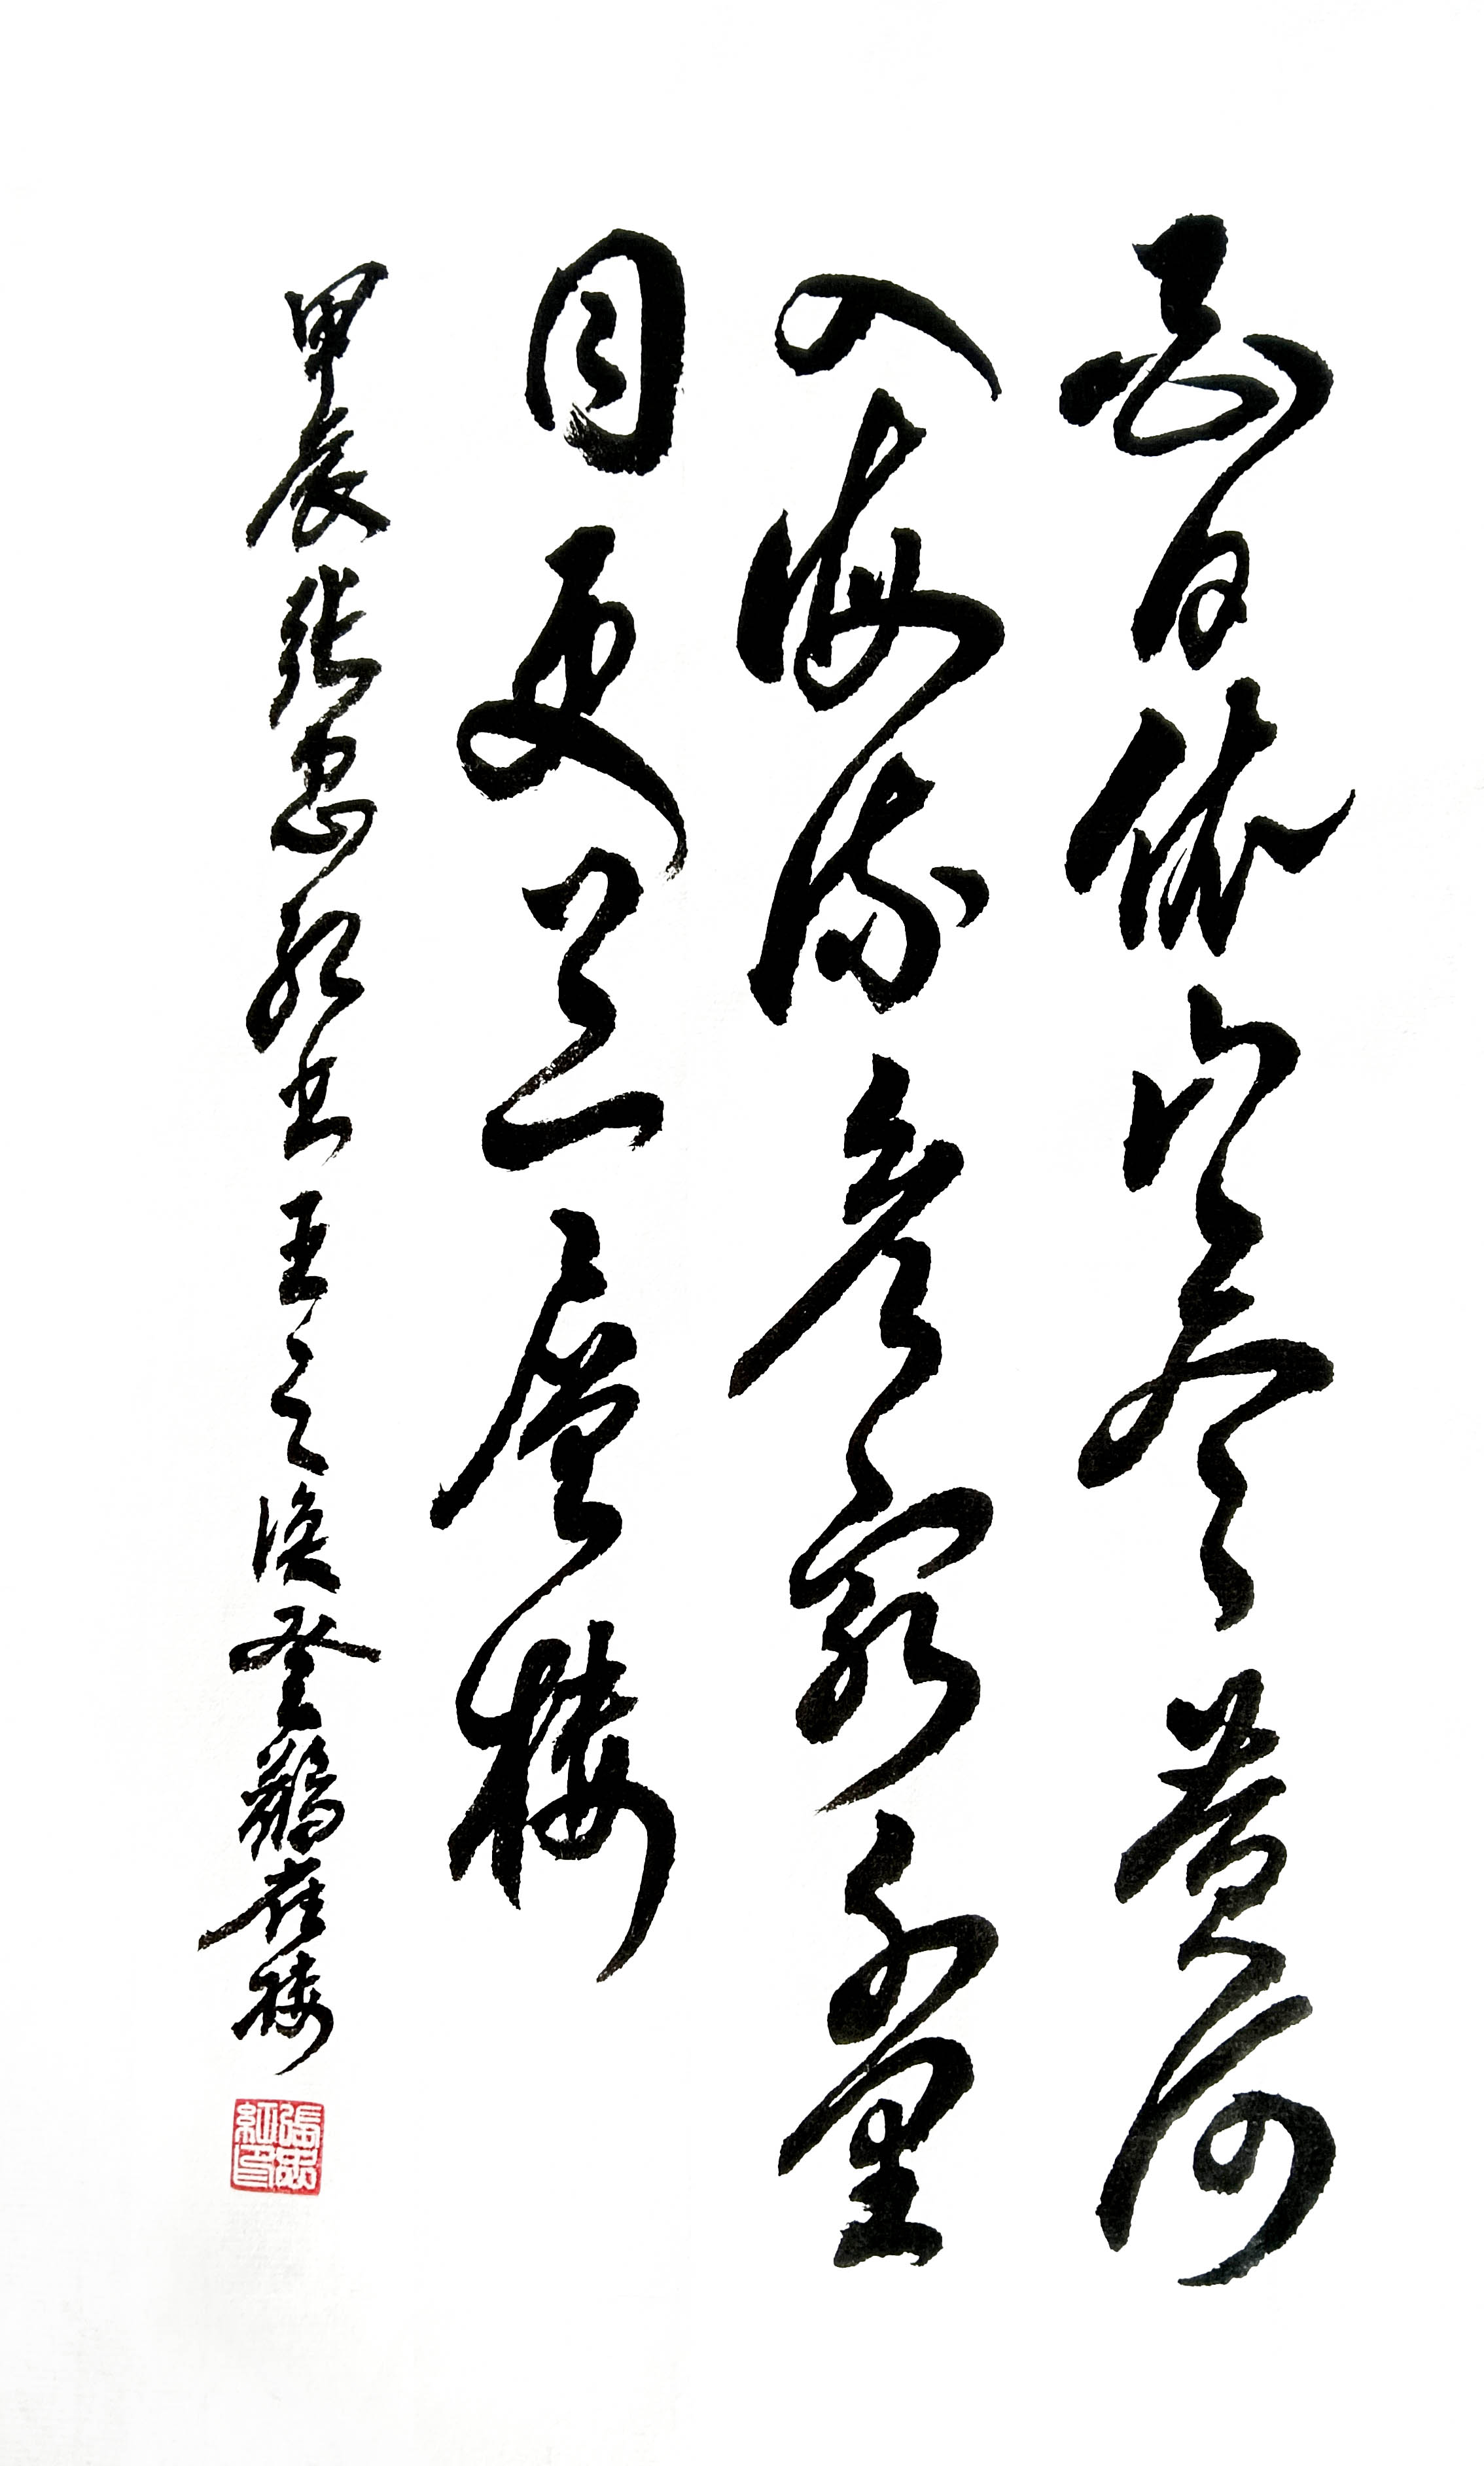 白日依山尽黄河
入海流欲穷千里
目更上一层楼
甲辰张忠红书王之涣登鹳雀楼
張忠紅印